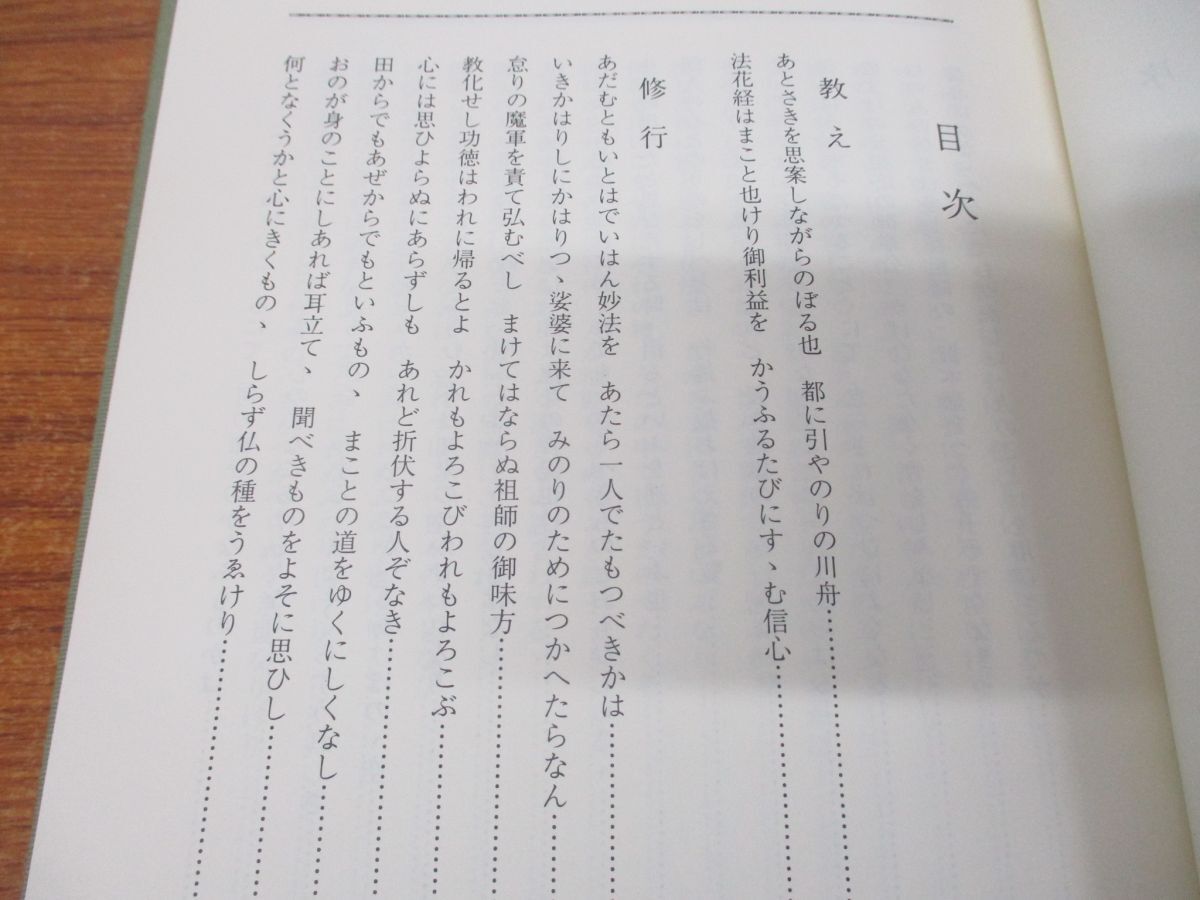 目次
教え
あとさきを思案しながらのぼる也　都に引やのりの川舟……………
法花経はまこと也けり御利益を　かうふるたびにすゝむ信心……………
修行
あだむともいとはでいはん妙法を　あたら一人でたもつべきかは……………
いきかはりしにかはりつゝ娑婆に来て　みのりのためにつかへたらなん……………
怠りの魔軍を責て弘むべし　まけてはならぬ祖師の御味方……………
教化せし功徳はわれに帰るとよ　かれもよろこびわれもよろこぶ……………
心には思ひよらぬにあらずしも　あれど折伏する人ぞなき……………
田からでもあぜからでもといふものゝ　まことの道をゆくにしくなし……………
おのが身のことにしあれば耳立てゝ　聞べきものをよそに思ひし……………
何となくうかと心にきくものゝ　しらず仏の種をうゑけり……………